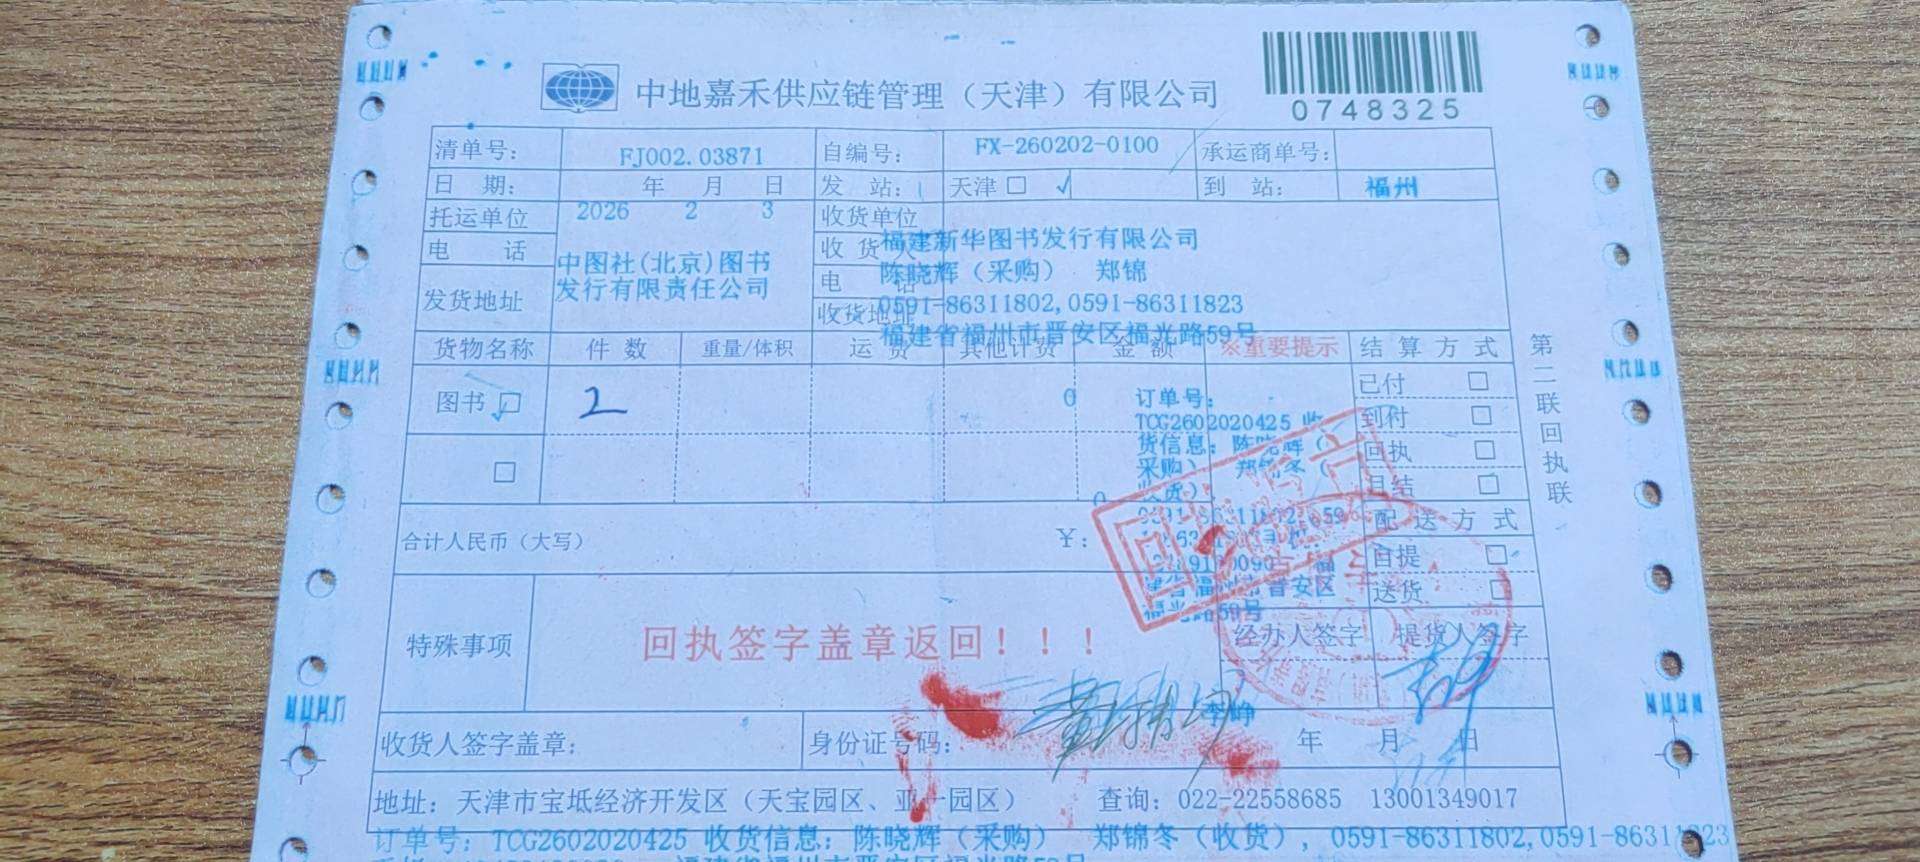 中地嘉禾供应链管理（天津）有限公司
0748325
清单号： FJ002.03871 自编号： FX-260202-0100 承运商单号：
日 期： 年 月 日 发 站： 天津□ √ 到 站： 福州
托运单位 2026 2 3 收货单位
福建新华图书发行有限公司
电 话 收 货 人
中图社(北京)图书 陈晓辉（采购） 郑锦
发行有限责任公司 电 话
发货地址 0591-86311802,0591-86311823
收货地址
福建省福州市晋安区福光路59号
货物名称 件 数 重量/体积 运 费 其他计费 金 额 ※重要提示 结 算 方 式
图书 □ 2 0
订单号：
TCG2602020425 收
货信息：陈晓辉（
采购）
已付 □
到付 □
回执 □
月结 □
□
0
配 送 方 式
自提 □
送货 □
合计人民币（大写） ￥：
晋安区
59号
第二联回执联
特殊事项 回执签字盖章返回！！！
经办人签字 提货人签字
李峥
收货人签字盖章： 身份证号码： 年 月 日
地址：天津市宝坻经济开发区（天宝园区、亚一园区） 查询：022-22558685 13001349017
订单号：TCG2602020425 收货信息：陈晓辉（采购） 郑锦冬（收货），0591-86311802,0591-86311823
福建省福州市晋安区福光路59号